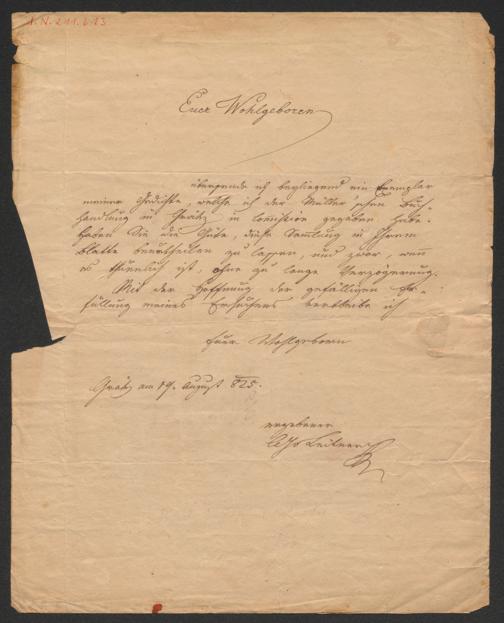 I. N. 211.613
Euer Wohlgeboren
übersende ich beyliegend ein Exemplar
meiner Gedichte, welche ich der Müller'schen Buch-
handlung in Grätz in Comission gegeben habe.
Haben Sie die Güte, diese Samlung in Ihrem
blatte beurtheilen zu lassen, und zwar, wenn
es thunlich ist, ohne zu lange Verzögerung.
Mit der Hoffnung der gefälligen Er-
füllung meines Ersuchens verbleibe ich
Euer Wohlgeboren
Grätz am 19. August 825.
ergebener
Leitner